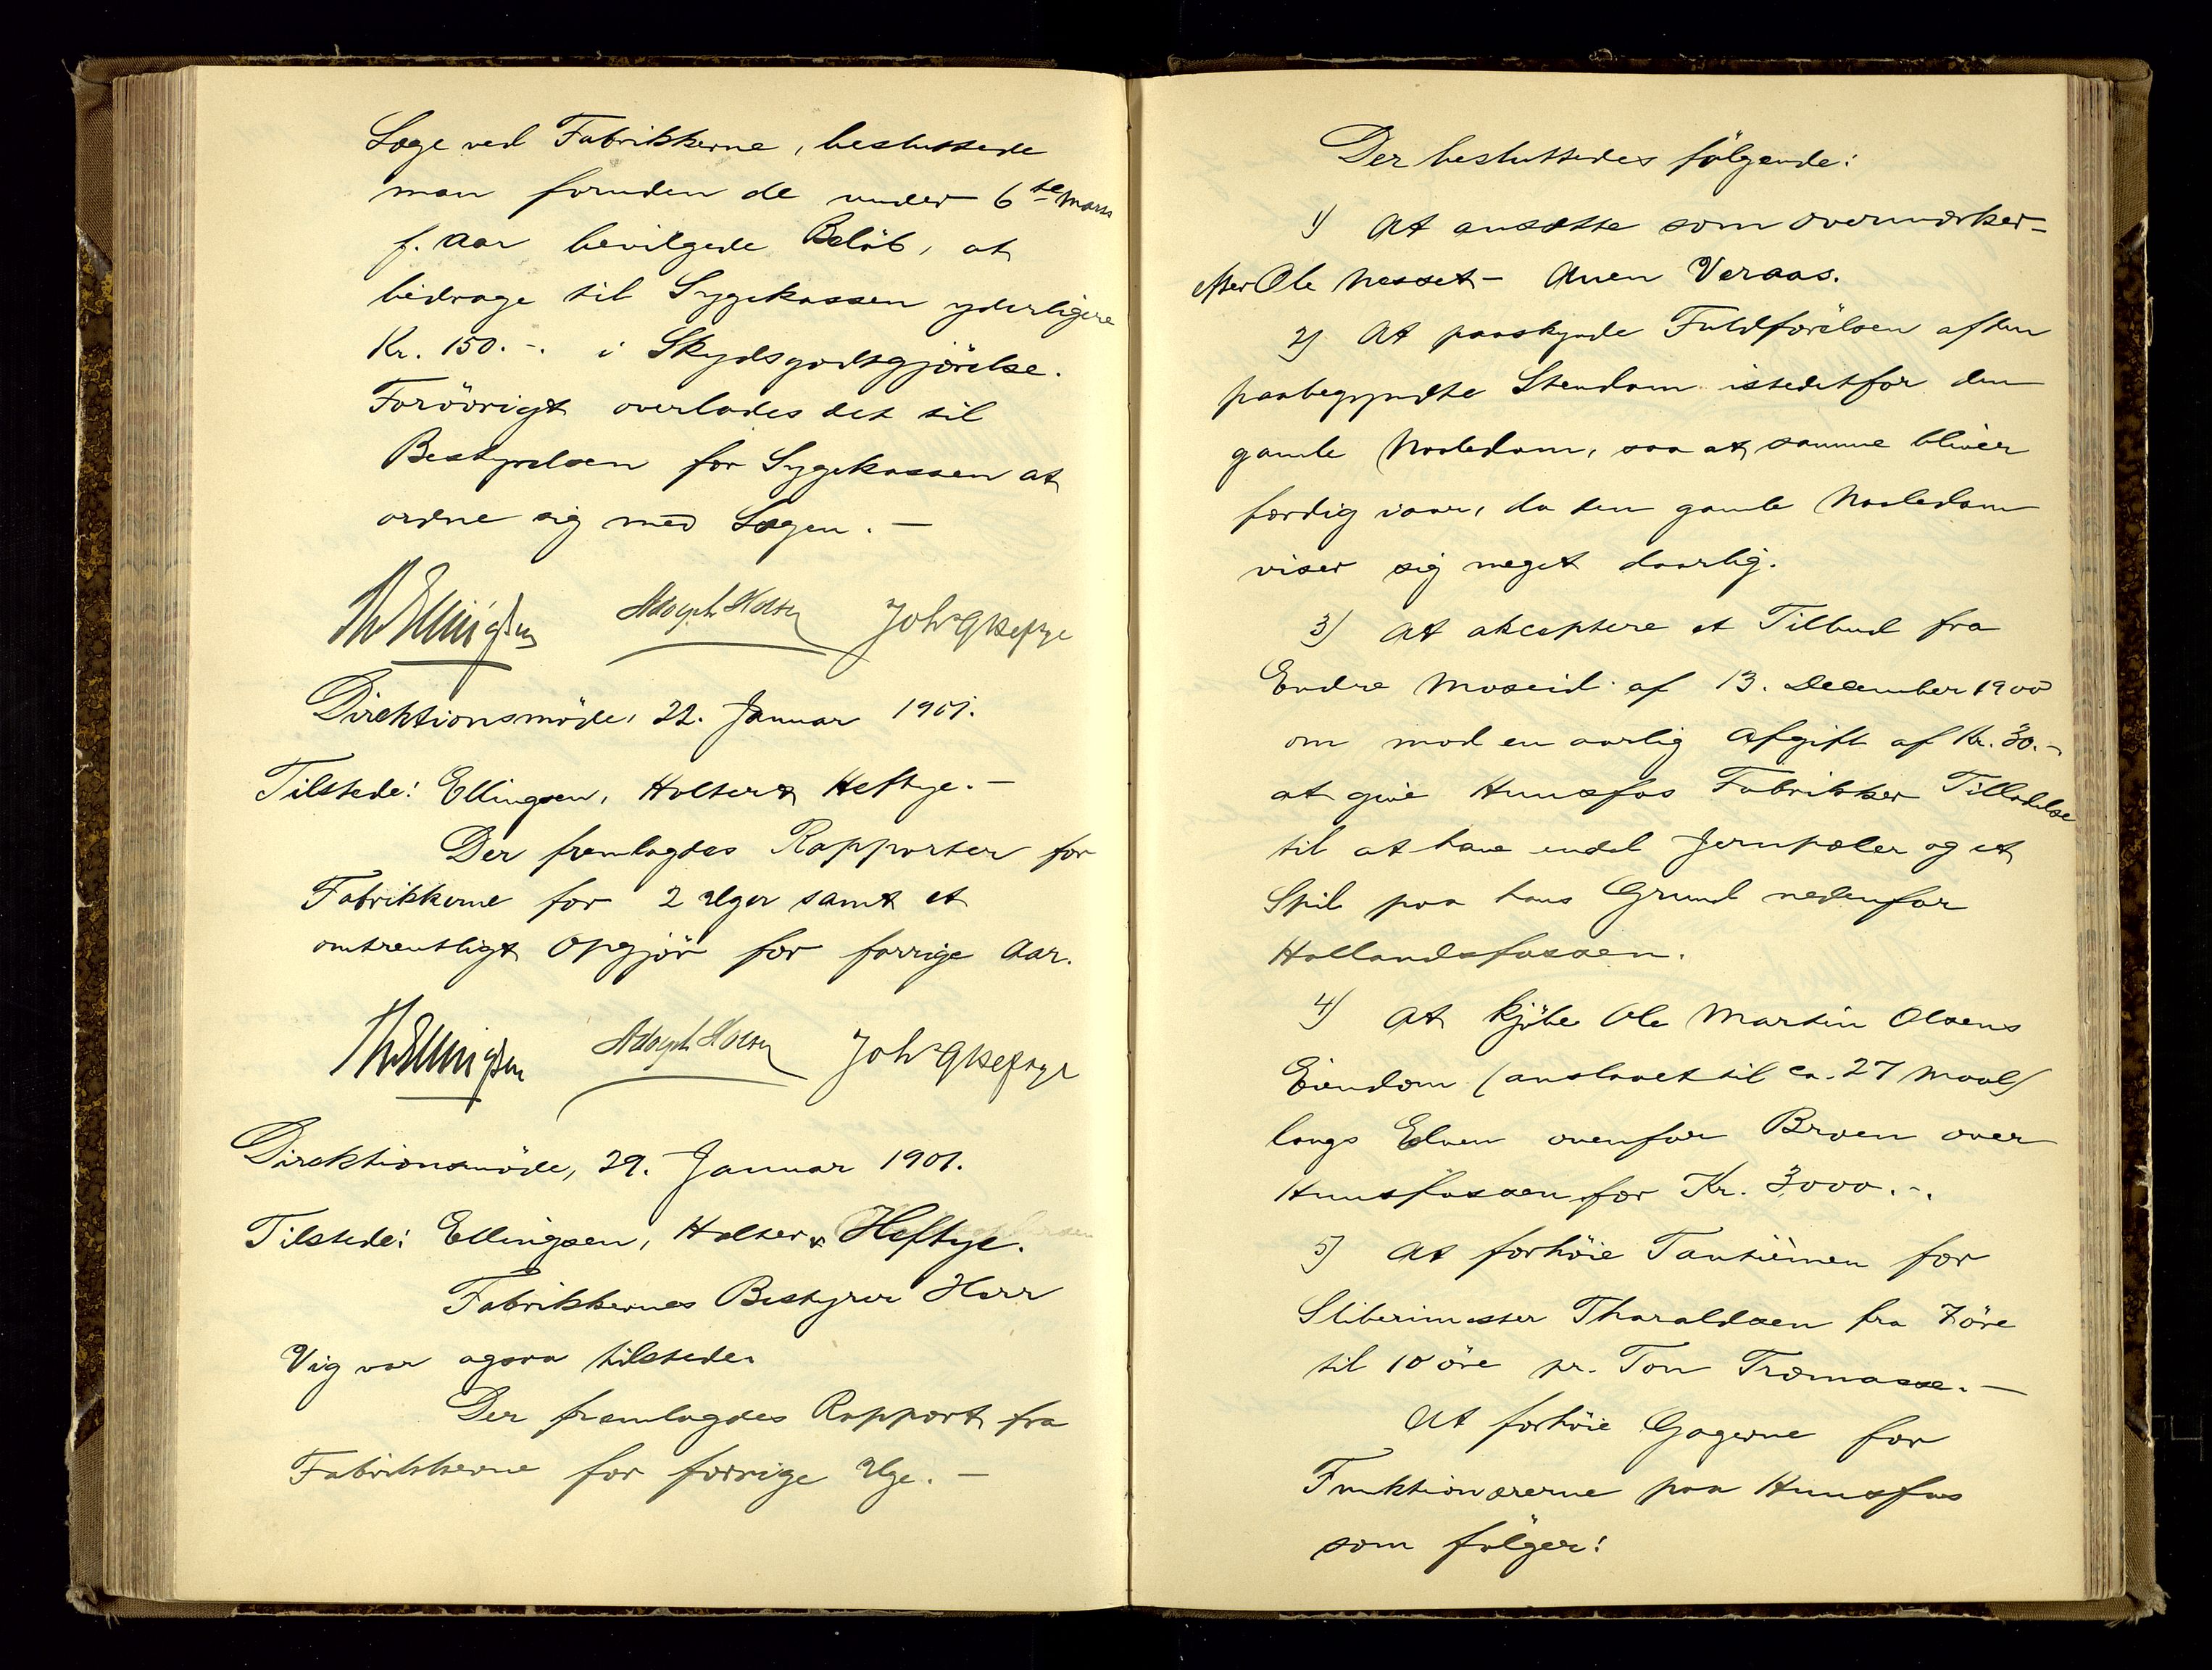 Læge ved Fabrikkerne, besluttede
man foruden de under 6te Marts
f. Aar bevilgede Beløb, at
bidrage til Sygekassen yderligere
Kr. 150.-. i Skydsgodtgjörelse.
Forövrigt overlades det til
Bestyrelsen for Sygekassen at
ordne sig med Lægen. –
Th Ellingsen Adolph Holter Joh G Heftye
Direktionsmöde, 22. Januar 1901.
Tilstede: Ellingsen, Holter & Heftye. –
Der fremlagdes Rapporter for
Fabrikkerne for 2 Uger samt et
omtrentligt Opgjör for forrige Aar.
Th Ellingsen Adolph Holter Joh G Heftye
Direktionsmöde, 29. Januar 1901.
Tilstede: Ellingsen, Holter & Heftye.
Fabrikkernes Bestyrer Herr
Vig var ogsaa tilstede.
Der fremlagdes Rapport fra
Fabrikkerne for forrige Uge. –
Der besluttedes fölgende:
1) At ansætte som Overmærker –
efter Ole Nesset – Anen Veraas.
2) At paaskynde Fuldförelsen af den
paabegyndte Stendam istedetfor den
gamle Naaledam, saa at samme bliver
færdig iaar, da den gamle Naaledam
viser sig meget daarlig.
3) At akceptere et Tilbud fra
Endre Moseid af 13. December 1900
om mod en aarlig Afgift af Kr. 30.-
at give Hunsfos Fabrikker Tilladelse
til at have endel Jernpæler og et
Spil paa hans Grund nedenfor
Hallandsfossen.
4) At kjöbe Ole Martin Olsens
Eiendom (anslaaet til ca. 27 Maal)
langs Elven ovenfor Broen over
Hunsfossen for Kr. 3,000.-.
5) At forhöie Tantièmen for
Sliberimester Tharaldsen fra 7 öre
til 10 öre pr. Ton Træmasse. –
At forhöie Gagerne for
Funktionærerne paa Hunsfos
som fölger: